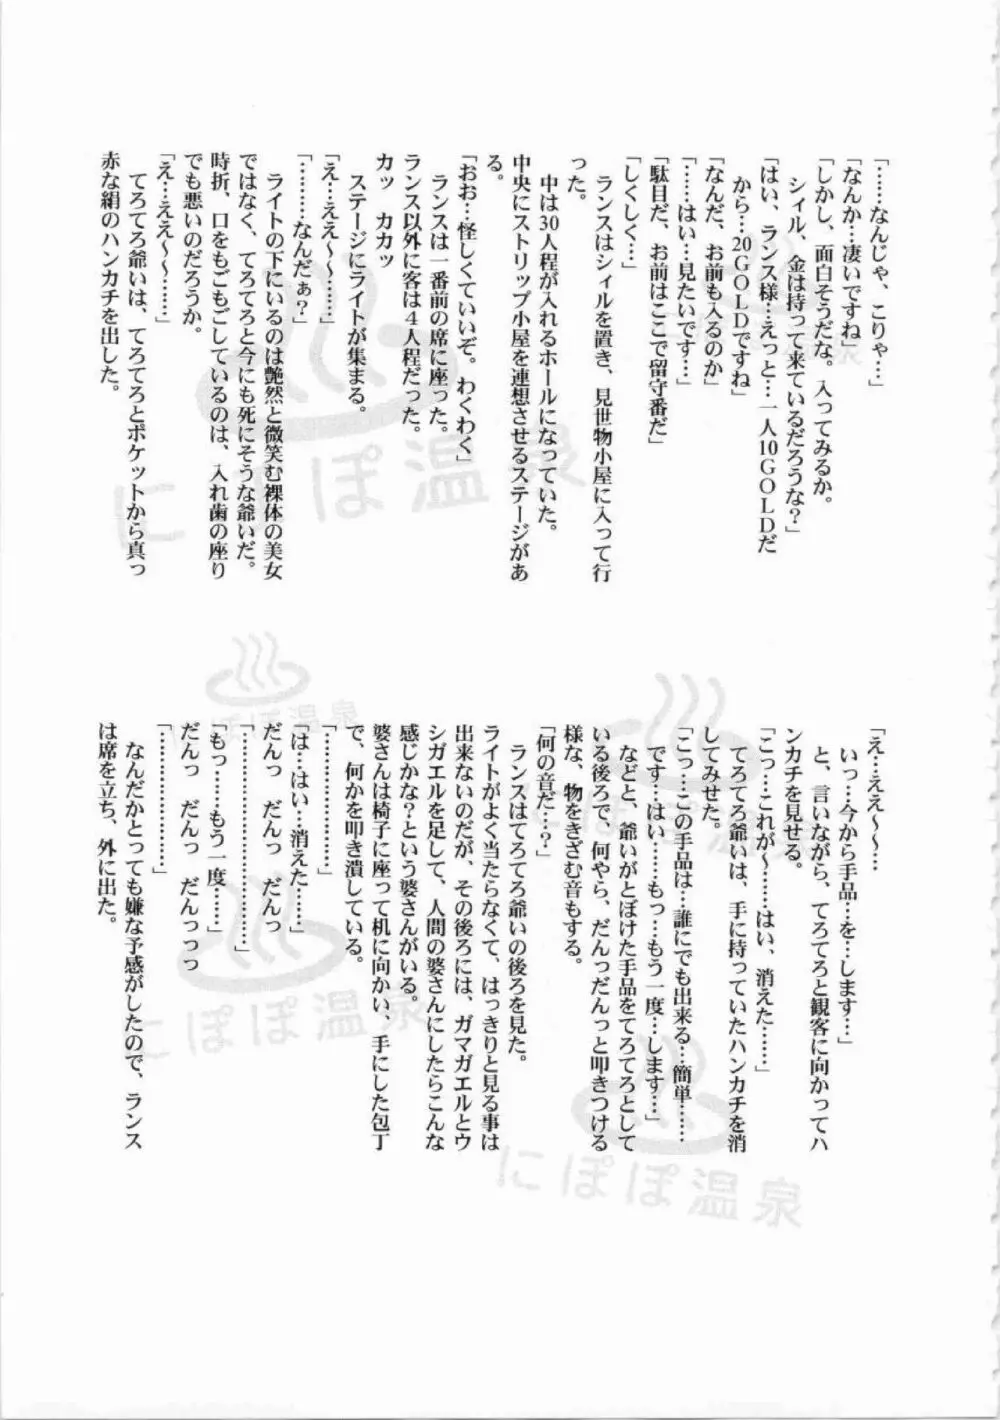 「………なんじゃ、こりゃ……」
「なんか…凄いですね」
「しかし、面白そうだな。入ってみるか。
シィル、金は持って来ているだろうな？」
「はい、ランス様…えっと…一人10GOLDだ
から…20GOLDですね」
「なんだ、お前も入るのか」
「……はい…見たいです…」
「駄目だ、お前はここで留守番だ」
「しくしく…」
ランスはシィルを置き、見世物小屋に入って行
った。
中は30人程が入れるホールになっていた。
中央にストリップ小屋を連想させるステージがあ
る。
「おお…怪しくていいぞ。わくわく」
ランスは一番前の席に座った。
ランス以外に客は４人程だった。
カッ　カカッ
ステージにライトが集まる。
「え…ええ～～……」
「………なんだぁ？」
ライトの下にいるのは艶然と微笑む裸体の美女
ではなく、てろてろと今にも死にそうな爺いだ。
時折、口をもごもごしているのは、入れ歯の座り
でも悪いのだろうか。
「え…ええ～～……」
てろてろ爺いは、てろてろとポケットから真っ
赤な絹のハンカチを出した。
「え…ええ～～…
いっ…今から手品…を…します…」
と、言いながら、てろてろと観客に向かってハ
ンカチを見せる。
「こっ…これが～……はい、消えた……」
てろてろ爺いは、手に持っていたハンカチを消
してみせた。
「こっ…この手品は…誰にでも出来る…簡単……
です…はい……もっ…もう一度…します…」
などと、爺いがとぼけた手品をてろてろとして
いる後ろで、何やら、だんっだんっと叩きつける
様な、物をきざむ音もする。
「何の音だ…？」
ランスはてろてろ爺いの後ろを見た。
ライトがよく当たらなくて、はっきりと見る事は
出来ないのだが、その後ろには、ガマガエルとウ
シガエルを足して、人間の婆さんにしたらこんな
感じかな？という婆さんがいる。
婆さんは椅子に座って机に向かい、手にした包丁
で、何かを叩き潰している。
「………………」
「は…はい…消えた……」
だんっ　だんっ　だんっ
「………………………」
「もっ……もう一度……」
だんっ　だんっ　だんっっっ
「………………」
なんだかとっても嫌な予感がしたので、ランス
は席を立ち、外に出た。
にぽぽ温泉
にぽぽ温泉
にぽぽ温泉
にぽぽ温泉